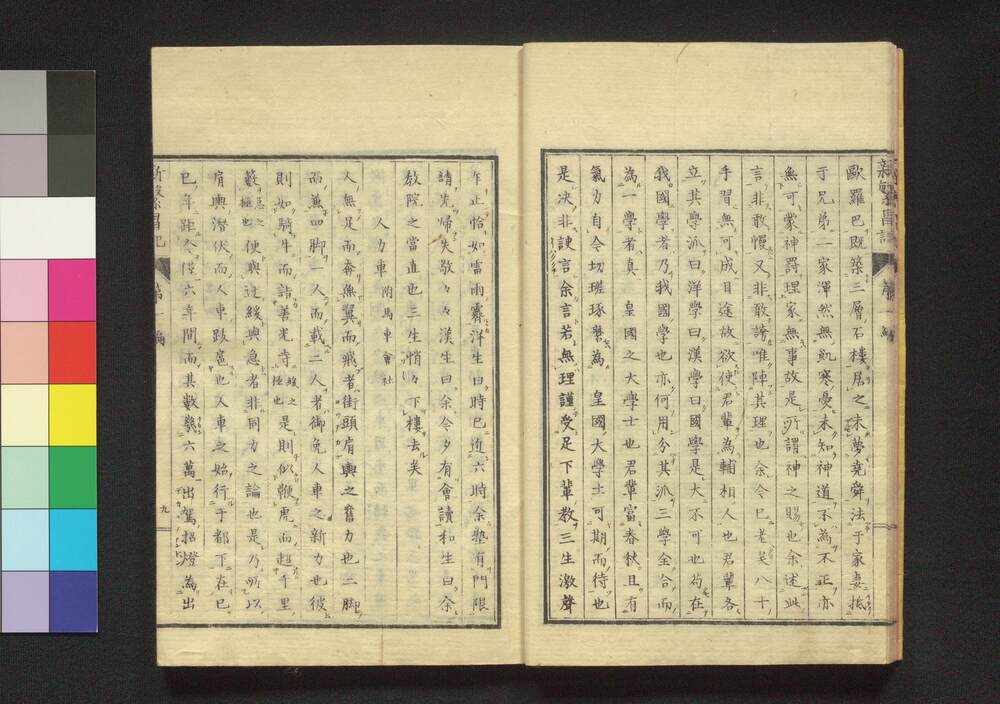 歐羅巴既築三層石樓居之未夢堯舜法于家妻抵
于兄弟一家渾然無飢寒憂未知神道不為不正亦
無可蒙神罰理家無事故是所謂神之賜也余述此
言非敢慢又非敢謗唯陣其理也余今已老矣八十
手習無可成目途故欲使君輩為輔相人也君輩各
立其學派曰洋學曰漢學曰國學是大不可也苟在
我國學者乃我國學也亦何用分其派三學全合而
為一學者真 皇國之大學士也君輩富春秋且有
氣力自今切琢磨為 皇國大學士可期而待也
是決非諛言余言若無理謹受足下輩教三生激聲
乍止恰如雷雨霽洋生曰時已近六時余塾有門限
請先帰失敬々々漢生曰余今夕有會讀和生曰余
教院之當直也三生悄々下樓去矣
人力車 附馬車會社
人無足而奔無翼而飛者街頭肩輿之奮力也二脚
而兼四脚一人而載二人者御免人車之新力也彼
則如騎牛而詣善光寺 緩之極也 是則似鞭虎而起千里
藪 急之極也 便輿過緩輿急者非同力之論也是乃所以
肩輿潛伏而人車跋扈也人車之始行于都下在巳
巳年距今僅六年間而其數幾六萬出駕招燈為出
新繁昌記 第一編
九